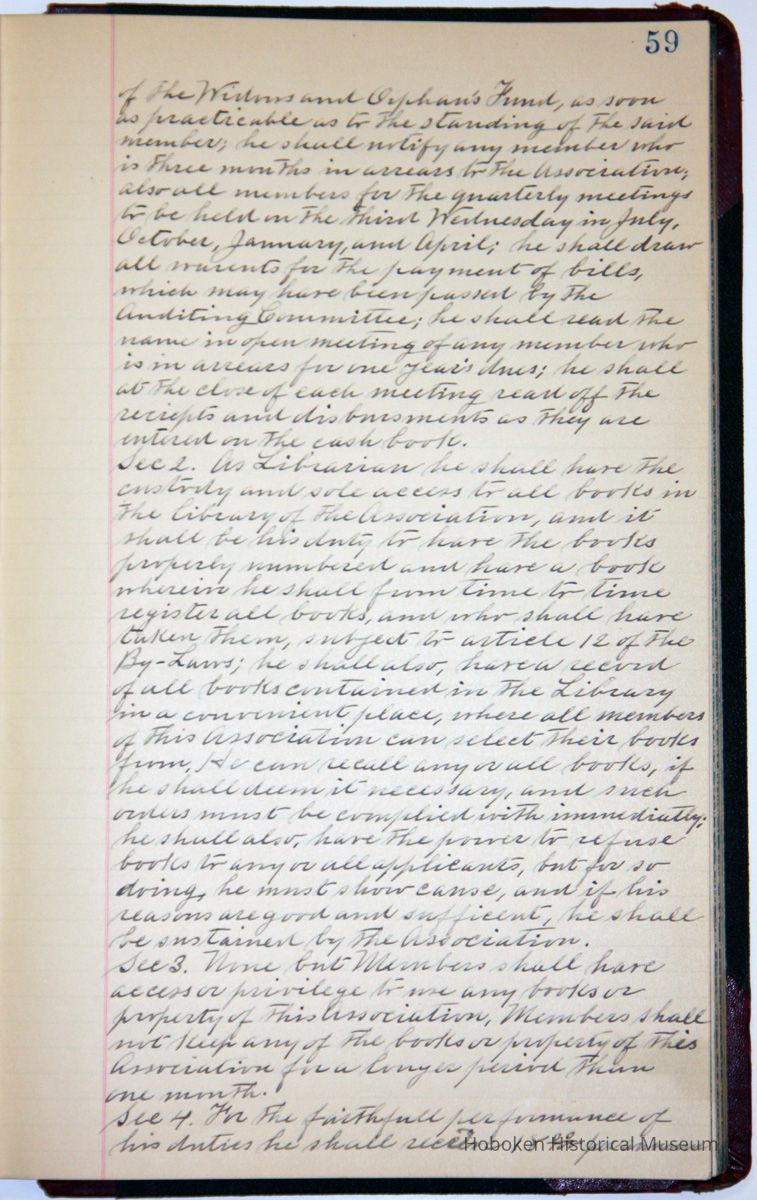 59
of the Widows and Orphan's Fund, as soon
as practicable as to the standing of the said
member; he shall notify any member who
is three months in arrears to the Association;
also all members for the quarterly meetings
to be held on the third Wednesday in July,
October, January, and April; he shall draw
all warents for the payment of bills,
which may have been passed by the
Auditing Committee; he shall read the
name in open meeting of any member who
is in arrears for one year's dues; he shall
at the close of each meeting read off the
reciepts and disbursments as they are
entered on the cash book.
Sec 2. As Librarian he shall have the
custody and sole access to all books in
the library of the Association, and it
shall be his duty to have the books
properly numbered and have a book
wherein he shall from time to time
register all books, and who shall have
taken them, subject to article 12 of the
By-Laws; he shall also, have a record
of all books contained in the Library
in a convenient place, where all members
of this Association can select their books
from, He can recall any or all books, if
he shall deem it necessary, and such
orders must be complied with immediatly;
he shall also, have the power to refuse
books to any or all applicants, but for so
doing, he must show cause, and if his
reasons are good and sufficent, he shall
be sustained by the Association.
Sec 3. None but Members shall have
access or privilege to use any books or
property of this Association, Members shall
not keep any of the books or property of this
Association for a longer period than
one month.
Sec 4. For the faithfull performance of
his duties he shall
Hoboken Historical Museum